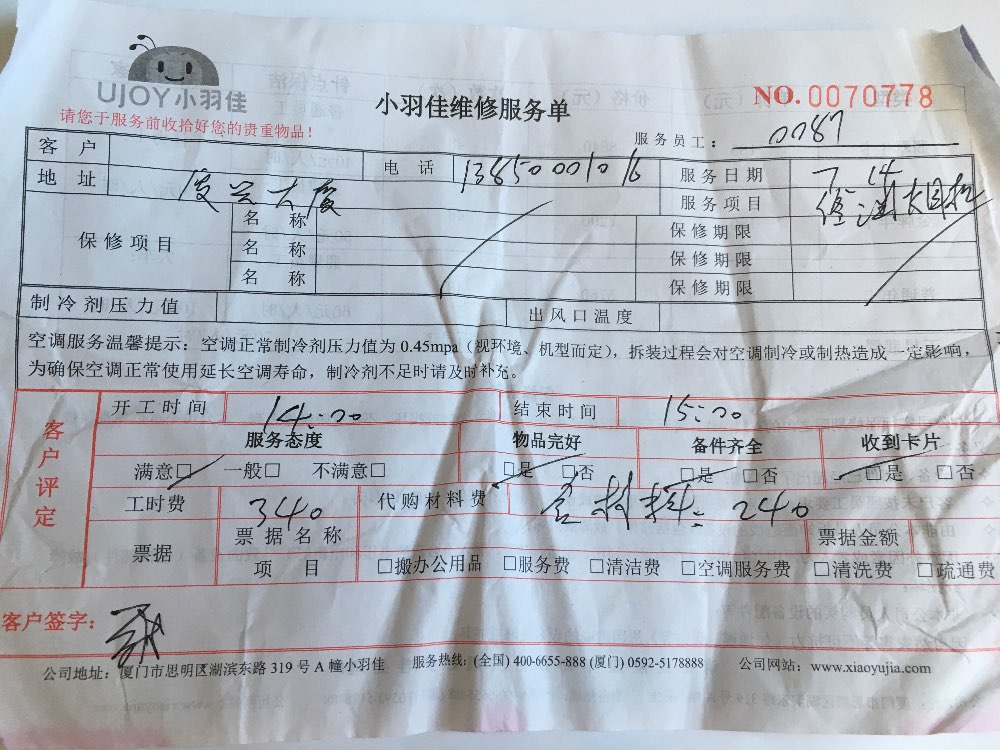 UJOY小羽佳
小羽佳维修服务单
NO. 0070778
请您于服务前收拾好您的贵重物品！
服务员工： 0087
客户 电话 13850001016 服务日期 7 14
地址 大厦 服务项目
保修项目 名称 保修期限
名称 保修期限
名称 保修期限
制冷剂压力值 出风口温度
空调服务温馨提示：空调正常制冷剂压力值为 0.45mpa（视环境、机型而定），拆装过程会对空调制冷或制热造成一定影响，
为确保空调正常使用延长空调寿命，制冷剂不足时请及时补充。
客户评定
开工时间 14:00 结束时间 15:00
服务态度 物品完好 备件齐全 收到卡片
满意□ 一般□ 不满意□ □是 □否 □是 □否 □是 □否
工时费 340 代购材料费 含材料: 240
票据 票据名称 票据金额
项目 □搬办公用品 □服务费 □清洁费 □空调服务费 □清洗费 □疏通费
客户签字：
公司地址：厦门市思明区湖滨东路 319 号 A 幢小羽佳 服务热线：(全国) 400-6655-888 (厦门) 0592-5178888 公司网站：www.xiaoyujia.com